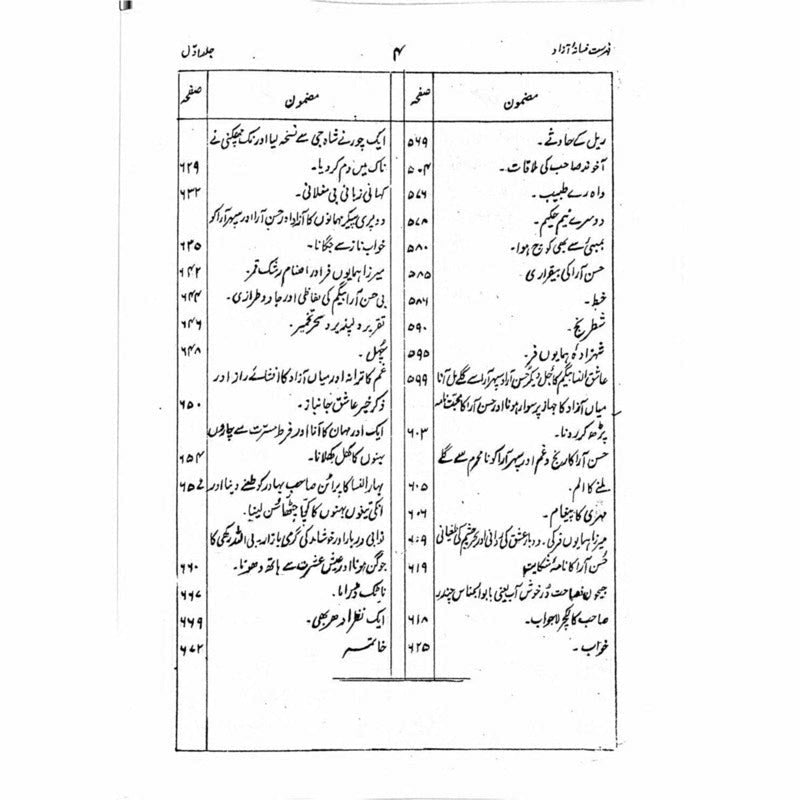 فہرست فسانۂ آزاد
۴
جلد اوّل
مضمون
صفحہ
ریل کے حادثے۔ ۵۶۹
آخوند صاحب کی ملاقات۔ ۵۰۴
واہ رے طبیب۔ ۵۷۶
دوسرے نیم حکیم۔ ۵۷۸
بمبئی سے بھی کوچ ہوا۔ ۵۸۰
حسن آرا کی بیقراری ۵۸۵
خط۔ ۵۸۶
شطرنج۔ ۵۹۰
شہزادہ ہمایوں فر۔ ۵۹۵
عاشق النسا بیگم کا جُل دیکر حسن آرا و سپہر آرا سے گلے مل آنا ۵۹۹
میاں آزاد کا جہاز پر سوار ہونا اور حسن آرا کا محبت نامہ
پڑھ کر رونا۔ ۶۰۳
حسن آرا کا رنج و غم اور سپہر آرا کو نامحرم سے گلے
ملنے کا الم۔ ۶۰۵
مہری کا پیغام۔ ۶۰۶
میرزا ہمایوں فر کی دوبارہ عشق کی اور چشم کی طغیانی ۶۰۹
حُسن آرا کا نامۂ شکایت ۶۱۹
جیحون فصاحت دُر خوش آب یعنی بابو چندر
صاحب کا لکچر لاجواب۔ ۶۱۸
خواب۔ ۶۲۵
مضمون
صفحہ
ایک چور نے شاہ جی سے نسخہ لیا اور نک چھکنی نے
ناک میں دم کر دیا۔ ۶۲۹
کہانی زبانی بی مغلانی۔ ۶۳۲
دو پری پیکر مہمانوں کا آزاد اور حسن آرا اور سپہر آرا کو
خواب ناز سے جگانا۔ ۶۳۵
میرزا ہمایوں فر اور اصنام رشک قمر۔ ۶۴۲
بی حسن آرا بیگم کی لفاظی اور جادو طرازی۔ ۶۴۴
تقریر دلپذیر و سحر تخمیر۔ ۶۴۶
چُہل۔ ۶۴۸
غم کا ترانہ اور میاں آزاد کا افشائے راز اور
ذکر خیر عاشق جانباز۔ ۶۵۰
ایک اور مہمان کا آنا اور فرط مسرت سے چاروں
بہنوں کا کھل کھلانا۔ ۶۵۴
بہار النسا کا پرائن صاحب بہادر کو طعنے دینا اور ۶۵۷
انکی تینوں بہنوں کا کچا چٹھا سُن لینا۔
نوابی دربار اور خوشامد کی گرمی بازار۔ بی اللہ رکھی کا
جوگن ہونا اور عیش عشرت سے ہاتھ دھونا۔ ۶۶۰
ناٹک ڈراما۔ ۶۶۷
ایک نظر ادھر بھی۔ ۶۶۹
خاتمہ ۶۷۲